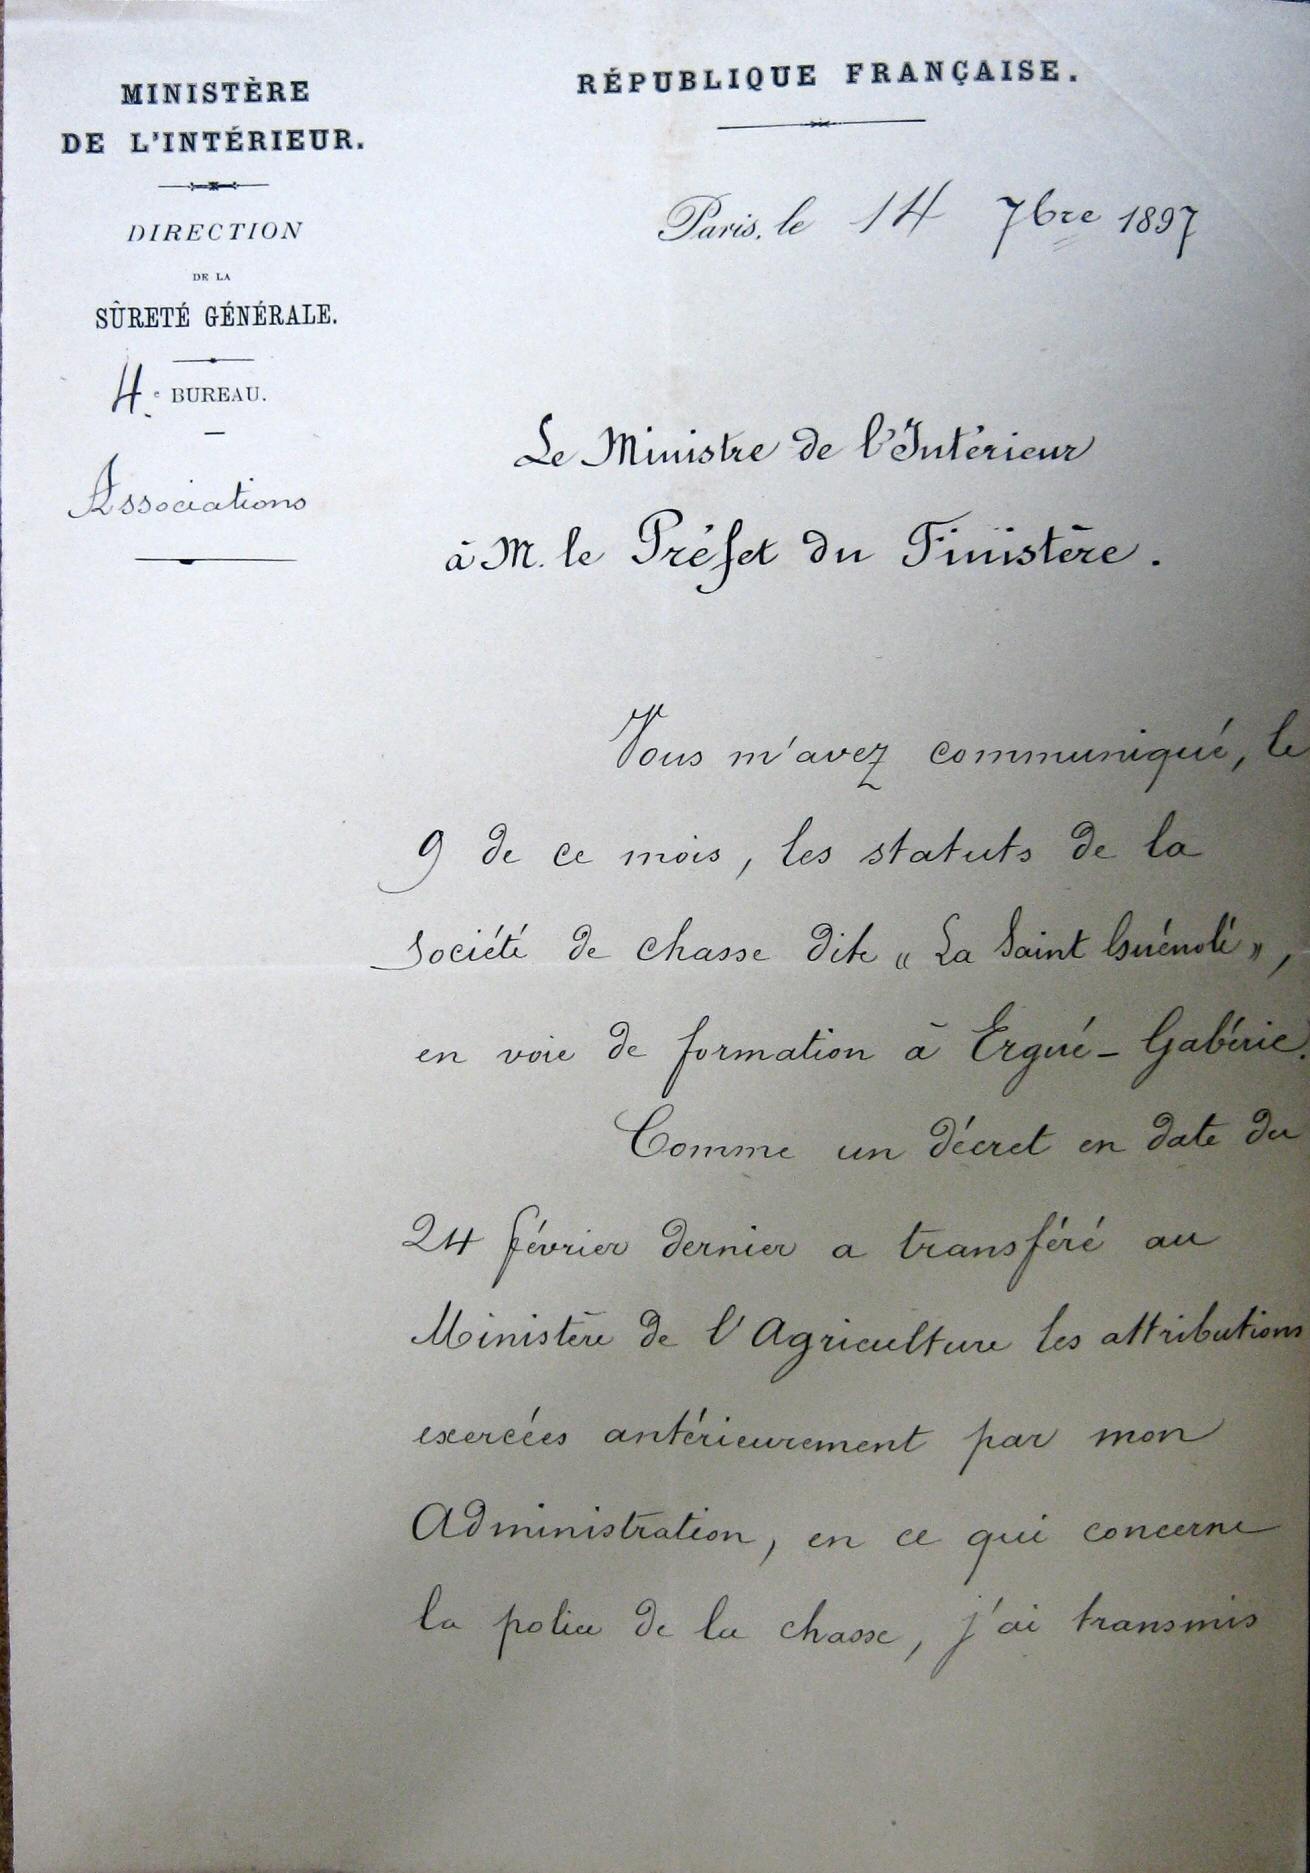 MINISTÈRE
DE L'INTÉRIEUR.
DIRECTION
DE LA
SÛRETÉ GÉNÉRALE.
4e BUREAU.
Associations
RÉPUBLIQUE FRANÇAISE.
Paris, le 14 7bre 1897
Le Ministre de l'Intérieur
à M. le Préfet du Finistère.
Vous m'avez communiqué, le
9 de ce mois, les statuts de la
Société de chasse dite « La Saint Guénolé »,
en voie de formation à Ergué-Gabéric.
Comme un décret en date du
24 février dernier a transféré au
Ministère de l'Agriculture les attributions
exercées antérieurement par mon
Administration, en ce qui concerne
la police de la chasse, j'ai transmis